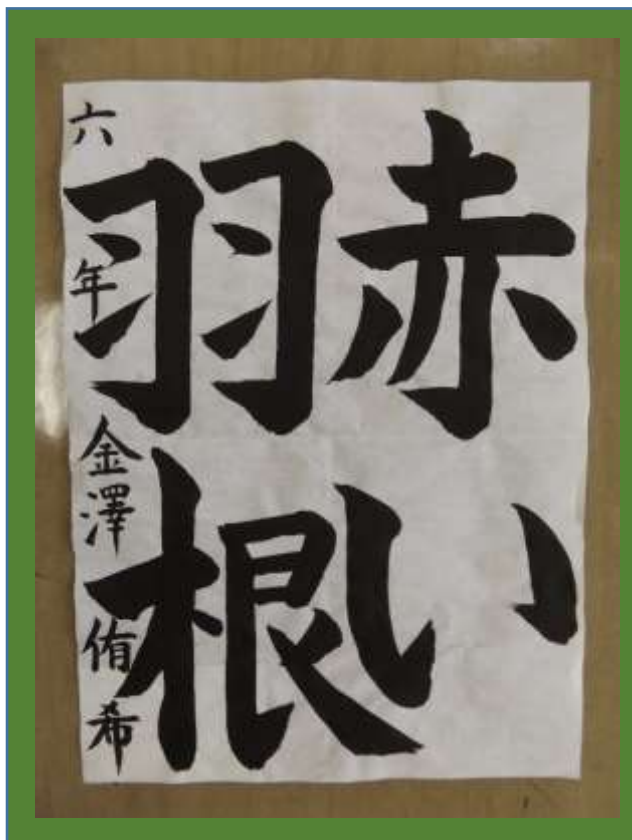 赤い
羽根
六年 金澤侑希